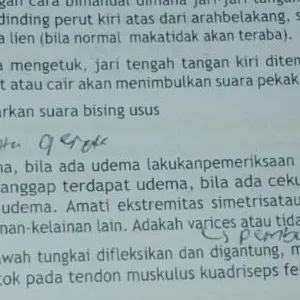 gan cara bimanual dimana jari-jari tangan
dinding perut kiri atas dari arahbelakang, s
a lien (bila normal makatidak akan teraba).
a mengetuk, jari tengah tangan kiri ditem
t atau cair akan menimbulkan suara pekak
arkan suara bising usus
gerak
na, bila ada udema lakukanpemeriksaan
anggap terdapat udema, bila ada ceku
udema. Amati ekstremitas simetrisatau
nan-kelainan lain. Adakah varices atau tida
awah tungkai difleksikan dan digantung, m
tok pada tendon muskulus kuadriseps fe